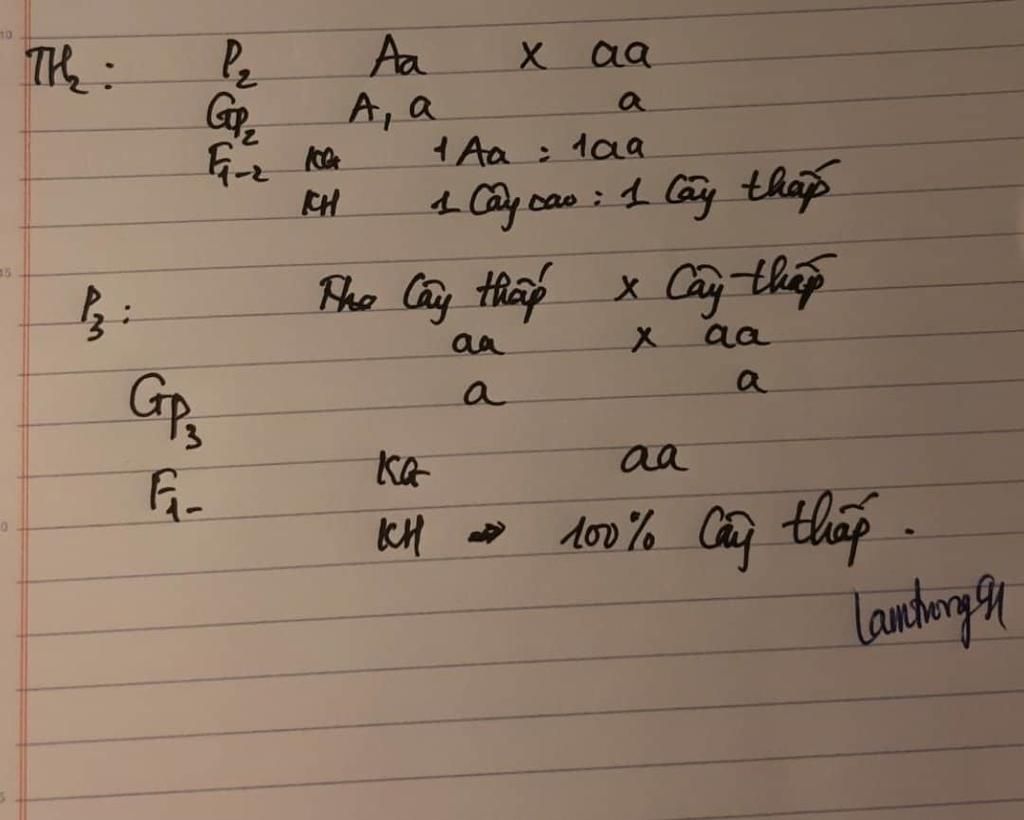 TH₂ : P₂ Aa x aa
Gp₂ A, a a
F₁₋₂ KG 1 Aa : 1aa
KH 1 Cây cao : 1 Cây thấp
P₃ : Cây thấp x Cây thấp
aa x aa
Gp₃ a a
F₁₋ KG aa
KH => 100% Cây thấp .